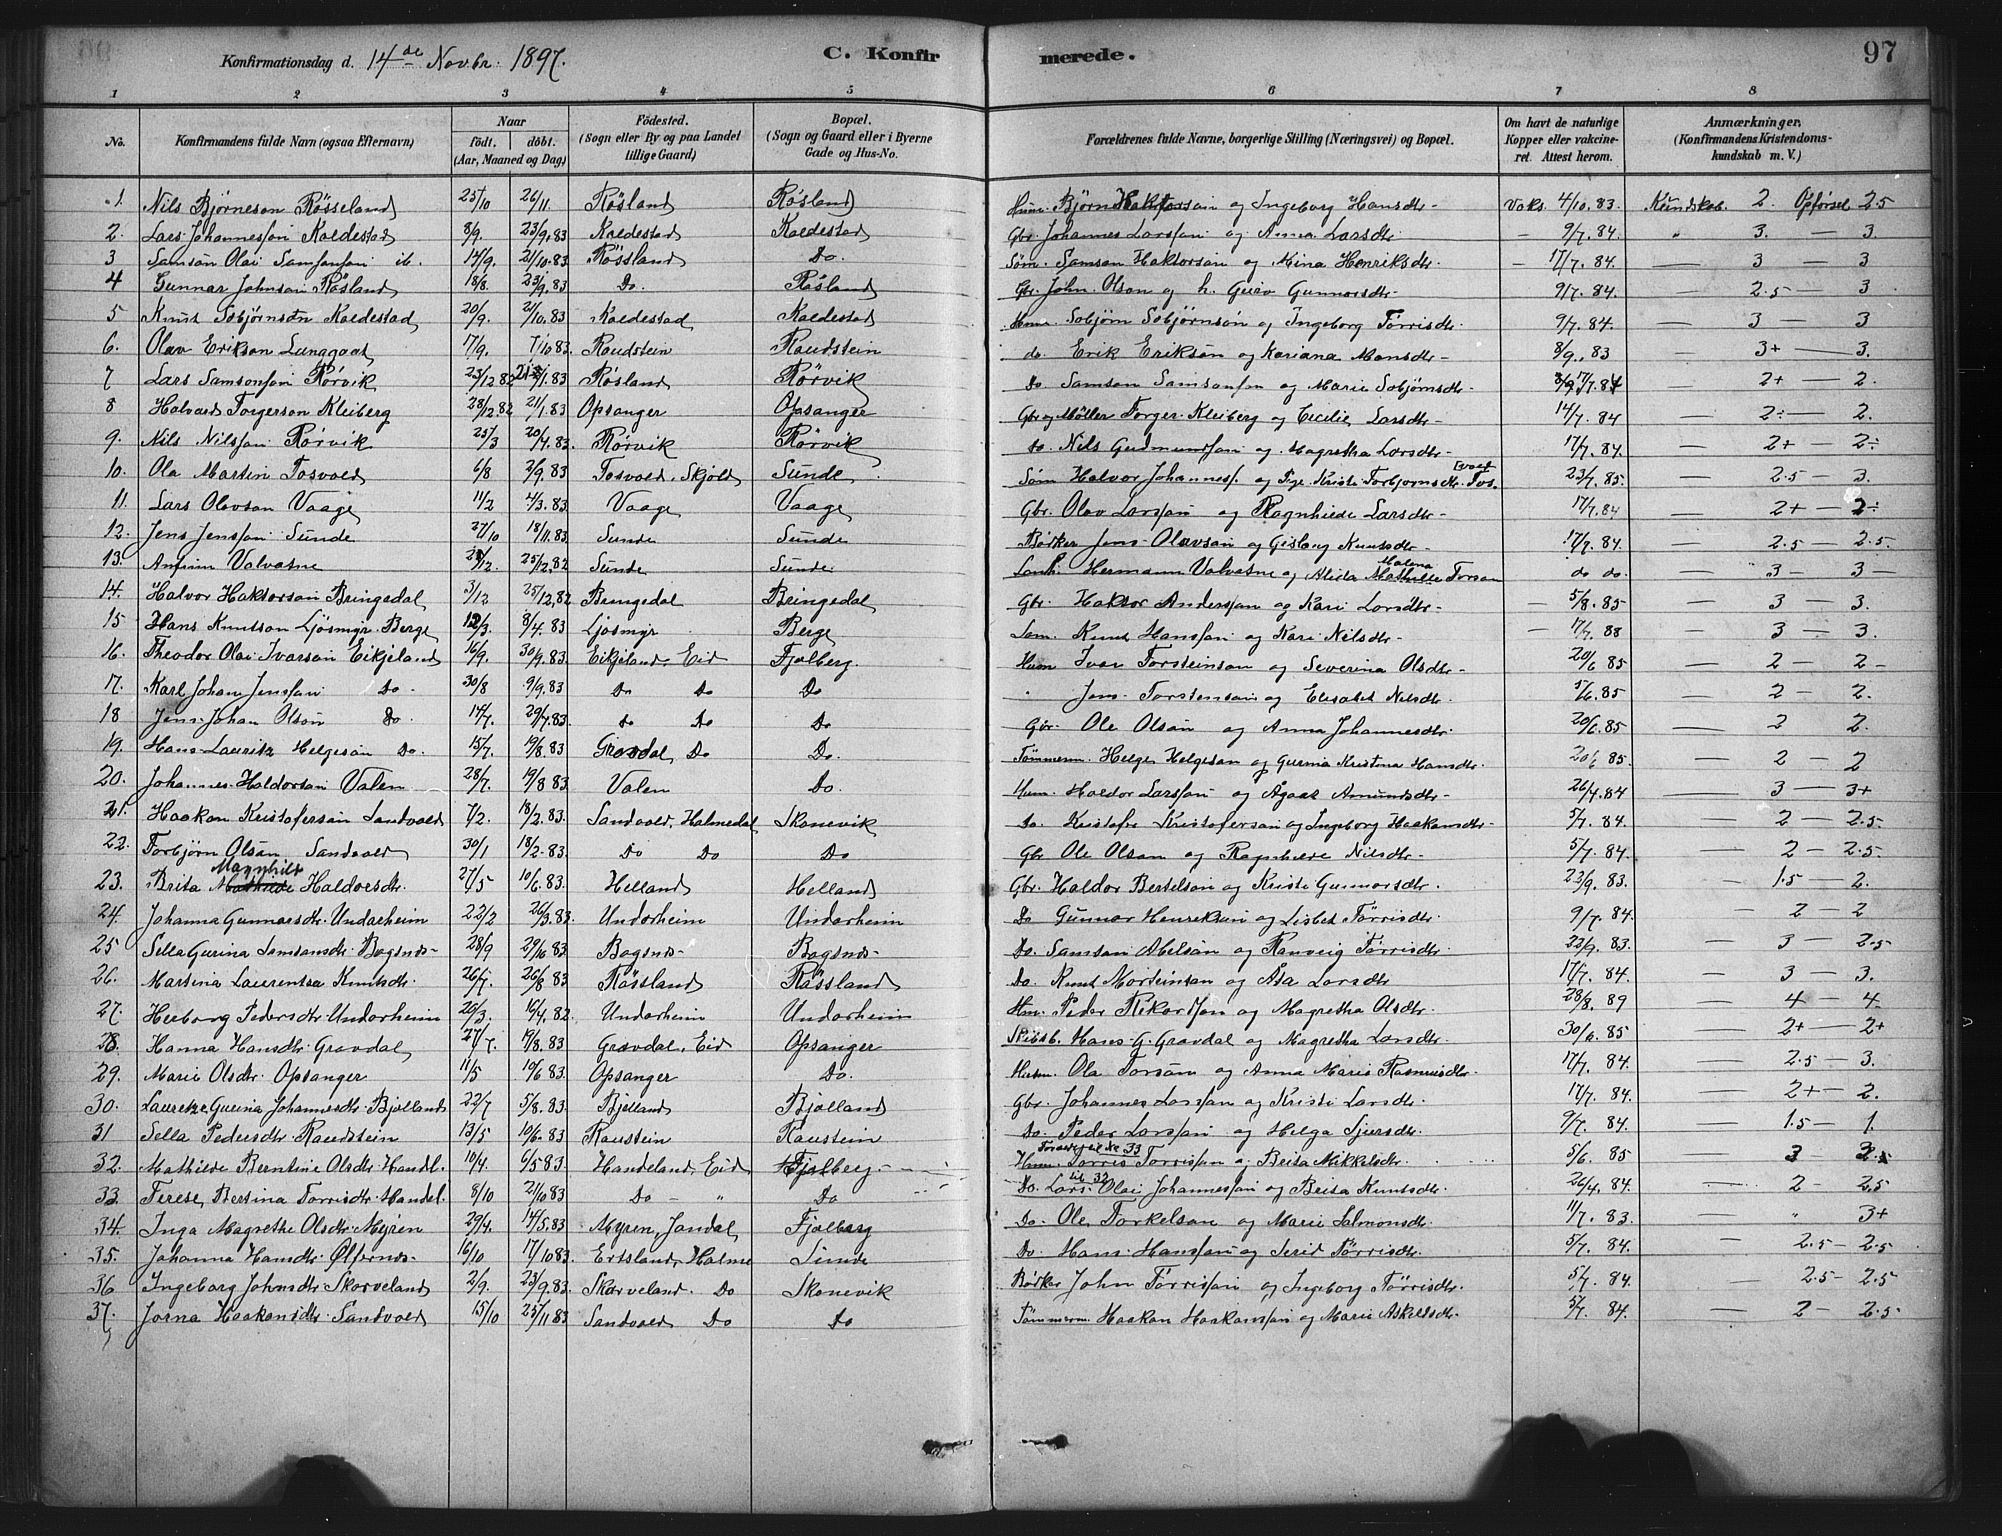 Konfirmationsdag d. 14de Novbr. 1897. C. Konfirmerede. 97
1 2 3 4 5 6 7 8
No. Konfirmandens fulde Navn (ogsaa Efternavn) Naar født. døbt. (Aar, Maaned og Dag) Fødested. (Sogn eller By og paa Landet tillige Gaard) Bopæl. (Sogn og Gaard eller i Byerne Gade og Hus-No. Forældrenes fulde Navne, borgerlige Stilling (Næringsvei) og Bopæl. Om havt de naturlige Kopper eller vakcineret. Attest herom. Anmærkninger, (Konfirmandens Kristendomskundskab m. V.)
1. Nils Bjørneson Røsseland 25/10 26/11. Røsland Røsland Hum. Bjørn Haktorson og Ingeborg Hansdtr. Vaks. 4/10. 83. Kundskab. 2. Opførsel 2.5
2. Lars Johannesson Kaldestad 8/9. 23/9. 83 Kaldestad Kaldestad Gbr. Johannes Larsson og Anna Larsdtr. — 9/7. 84. " 3. — 3.
3 Samson Olai Samsonson ib. 14/9. 21/10. 83 Røssland Do. Søm. Samson Haktorson og Mina Henriksdtr. — 17/7. 84. — 3 — 3
4 Gunnar Johnson Røsland 18/8. 23/9. 83 Do. Røsland Gbr. John Olson og h. Guro Gunnarsdtr. 9/7. 84. — 2.5 — 3.
5 Knut Sobjørnson Kaldestad 20/9. 21/10. 83 Kaldestad Kaldestad Hum. Sobjørn Sobjørnson og Ingeborg Tørrisdtr. 9/7. 84. — 3 — 3
6. Olav Erikson Lunggaat 17/9. 7/10 83. Raudstein Raudstein do. Erik Erikson og Kariana Monsdtr. 8/9. 83 — 3+ — 3.
7 Lars Samsonson Rørvik 23/12 82 21/1. 83 Røsland Rørvik Do Samson Samsonson og Marie Sobjørnsdtr. 17/7. 84 — 2+ — 2.
8 Halvard Torgerson Kleiberg 28/12. 82 21/1. 83 Opsanger Opsanger Gbr og Møller Torger Kleiberg og Cecilie Larsdtr. 14/7. 84 — 2÷ — 2.
9. Nils Nilsson Rørvik 25/3 20/4. 83. Rørvik Rørvik do. Nils Gudmundson og Magretha Larsdtr. 17/7. 84. — 2+ — 2÷
10. Ola Martin Tosvold 6/8 2/9. 83. Tosvold, Skjold Sunde Søm Halvor Johanness. og Pige Kristi Torbjørnsdtr. Tosvold 23/7. 85 — 2.5 — 3.
11 Lars Olavson Vaage 11/2 4/3. 83. Vaage Vaage Gbr. Olav Larsson og Ragnhilde Larsdtr. 17/7. 84 — 2+ — 2÷
12. Jens Jensson Sunde 27/10 18/11. 83. Sunde Sunde Bødker Jens Olavson og Gisborg Knutsdtr. 17/7. 84. — 2.5 — 2.5.
13. Anfinn Valvatne 25/12. 82 Sunde Sunde. Hermann Valvatne og Alida Malena Torson do do. — 3 — 3 —
14. Halvor Haktorson Bringedal 3/12 25/12. 82 Bringedal Bringedal Gbr. Haktor Andersson og Kari Larsdtr. — 5/8. 85 — 3 — 3.
15 Hans Knutson Ljosmyr Berge 12/3. 8/4. 83 Ljosmyr Berge Søm. Knut Hansson og Kari Nilsdtr. — 17/7. 88 — 3 — 3.
16. Theodor Olai Ivarson Eikjeland 16/9. 30/9. 83. Eikjeland, Eid Fjelberg. Hum Ivar Torsteinson og Severina Olsdtr. 20/6 85 — 2 — 2 —
17. Karl Johan Jensson Do. 30/8 9/9. 83 Do Do Do " Jens Torstenson og Elisabet Nilsdtr. 5/6. 85 — 2 — 2.
18 Jens Johan Olson Do. 14/7. 29/7. 83. Do Do Do Gbr. Ole Olson og Anna Johannesdtr. 20/6. 85 — 2 2.
19. Hans Lauritz Helgeson Do. 15/7. 19/8. 83 Gravdal, Do Do. Tømmerm. Helge Helgeson og Gurina Kristina Hansdtr. 20/6 85. — 2 — 2
20. Johannes Haldorson Valen 28/7. 19/8 83 Valen Do. Hum. Haldor Larsson og Agaat Amundsdtr. 26/4. 84 — 3 — 3+
21. Haakon Kristoferson Sandvold 7/2. 18/2. 83. Sandvold, Halmedal Skonevik Do. Kristofer Kristoferson og Ingeborg Haakonsdtr. 5/7. 84. — 2 — 2.5.
22. Torbjørn Olson Sandvold 30/1 18/2. 83. Do Do Do Gbr Ole Olson og Ragnhilde Nilsdtr. 5/7. 84. — 2 — 2.5.
23. Brita Magnhilt Haldorsdtr. 27/5 10/6. 83. Helland Helland Gbr. Haldor Bertelson og Kristi Gunnarsdtr. 23/9. 83. — 1.5 — 2.
24. Johanna Gunnarsdtr. Undarheim 22/2 26/3. 83. Undarheim Undarheim Do Gunnar Henrekson og Lisbet Tørrisdtr. 9/7. 84. — 2 — 2
25 Sella Gurina Samsonsdtr. Bogsnes 28/9 29/10 83. Bogsnes Bogsnes Do. Samson Abelson og Ranveig Tørrisdtr. 23/9. 83. — 3 — 2.5
26. Martina Laurentza Knutsdtr. 26/7. 26/8 83. Røssland Røssland Do. Knut Morteinson og Åsa Larsdtr. 17/7. 84. — 3 — 3.
27. Herborg Pedersdtr. Undarheim 26/3. 16/4. 82. Undarheim Undarheim Hm. Peder Rikardson og Magretha Olsdtr. 28/8. 89 — 4 — 4.
28. Hanna Hansdtr. Gravdal 27/7. 19/8. 83 Gravdal, Eid Opsanger Skibsb. Hans G. Gravdal og Magretha Larsdtr. 30/6. 85 — 2+ — 2+
29. Marie Olsdtr. Opsanger 11/5 10/6 83. Opsanger Do. Husm. Ola Torson og Anna Marie Rasmusdtr. 17/7. 84. — 2.5 — 3.
30. Lauretze Gurina Johannesdtr. Bjelland 22/7 5/8. 83. Bjelland Bjelland Gbr. Johannes Larsson og Kristi Larsdtr. 17/7. 84. — 2+ — 2.
31 Sella Pedersdtr. Raudstein 13/5 10/6. 83. Raustein Raustein Do. Peder Larsson og Helga Sjursdtr. 9/7. 84. — 1.5 — 1.
32. Mathilde Berntine Olsdtr. Handl. 10/4. 6/5 83. Handeland, Eid Fjelberg Hum. Torris Torrison og Brita Mikkelsdtr. 33 5/6. 85 — 3 —
33 Terese Bertina Torrisdtr. Handel. 8/10 21/10 83 Do — " Do Do. Lars Olai Johannesson og Brita Knutsdtr. til 32 26/4. 84. — 2 — 2.5
34. Inga Magrethe Olsdtr. Myren 29/4. 14/5. 83 Myren, Jondal, Fjelberg Do. Ole Torkelson og Marie Salmonsdtr. 11/7. 83. — " 3+
35. Johanna Hansdtr. Ølfernes 16/10 17/10 83. Ertsland, Halme Sunde Do. Hans Hansson og Serid Tørrisdtr. 5/7. 84. — 2.5 — 2.5
36 Ingeborg Johnsdtr. Skarveland 2/9. 23/9. 83 Skarveland. Do Skonevik Bødker John Tørrisson og Ingeborg Tørrisdtr. 5/7. 84. 2.5 — 2.5
37. Jorna Haakonsdtr. Sandvold 15/10 25/11 83 Sandvold Do Do Tømmerm. Haakon Haakonson og Marie Askelsdtr. 5/7. 84. — 2 — 2.5